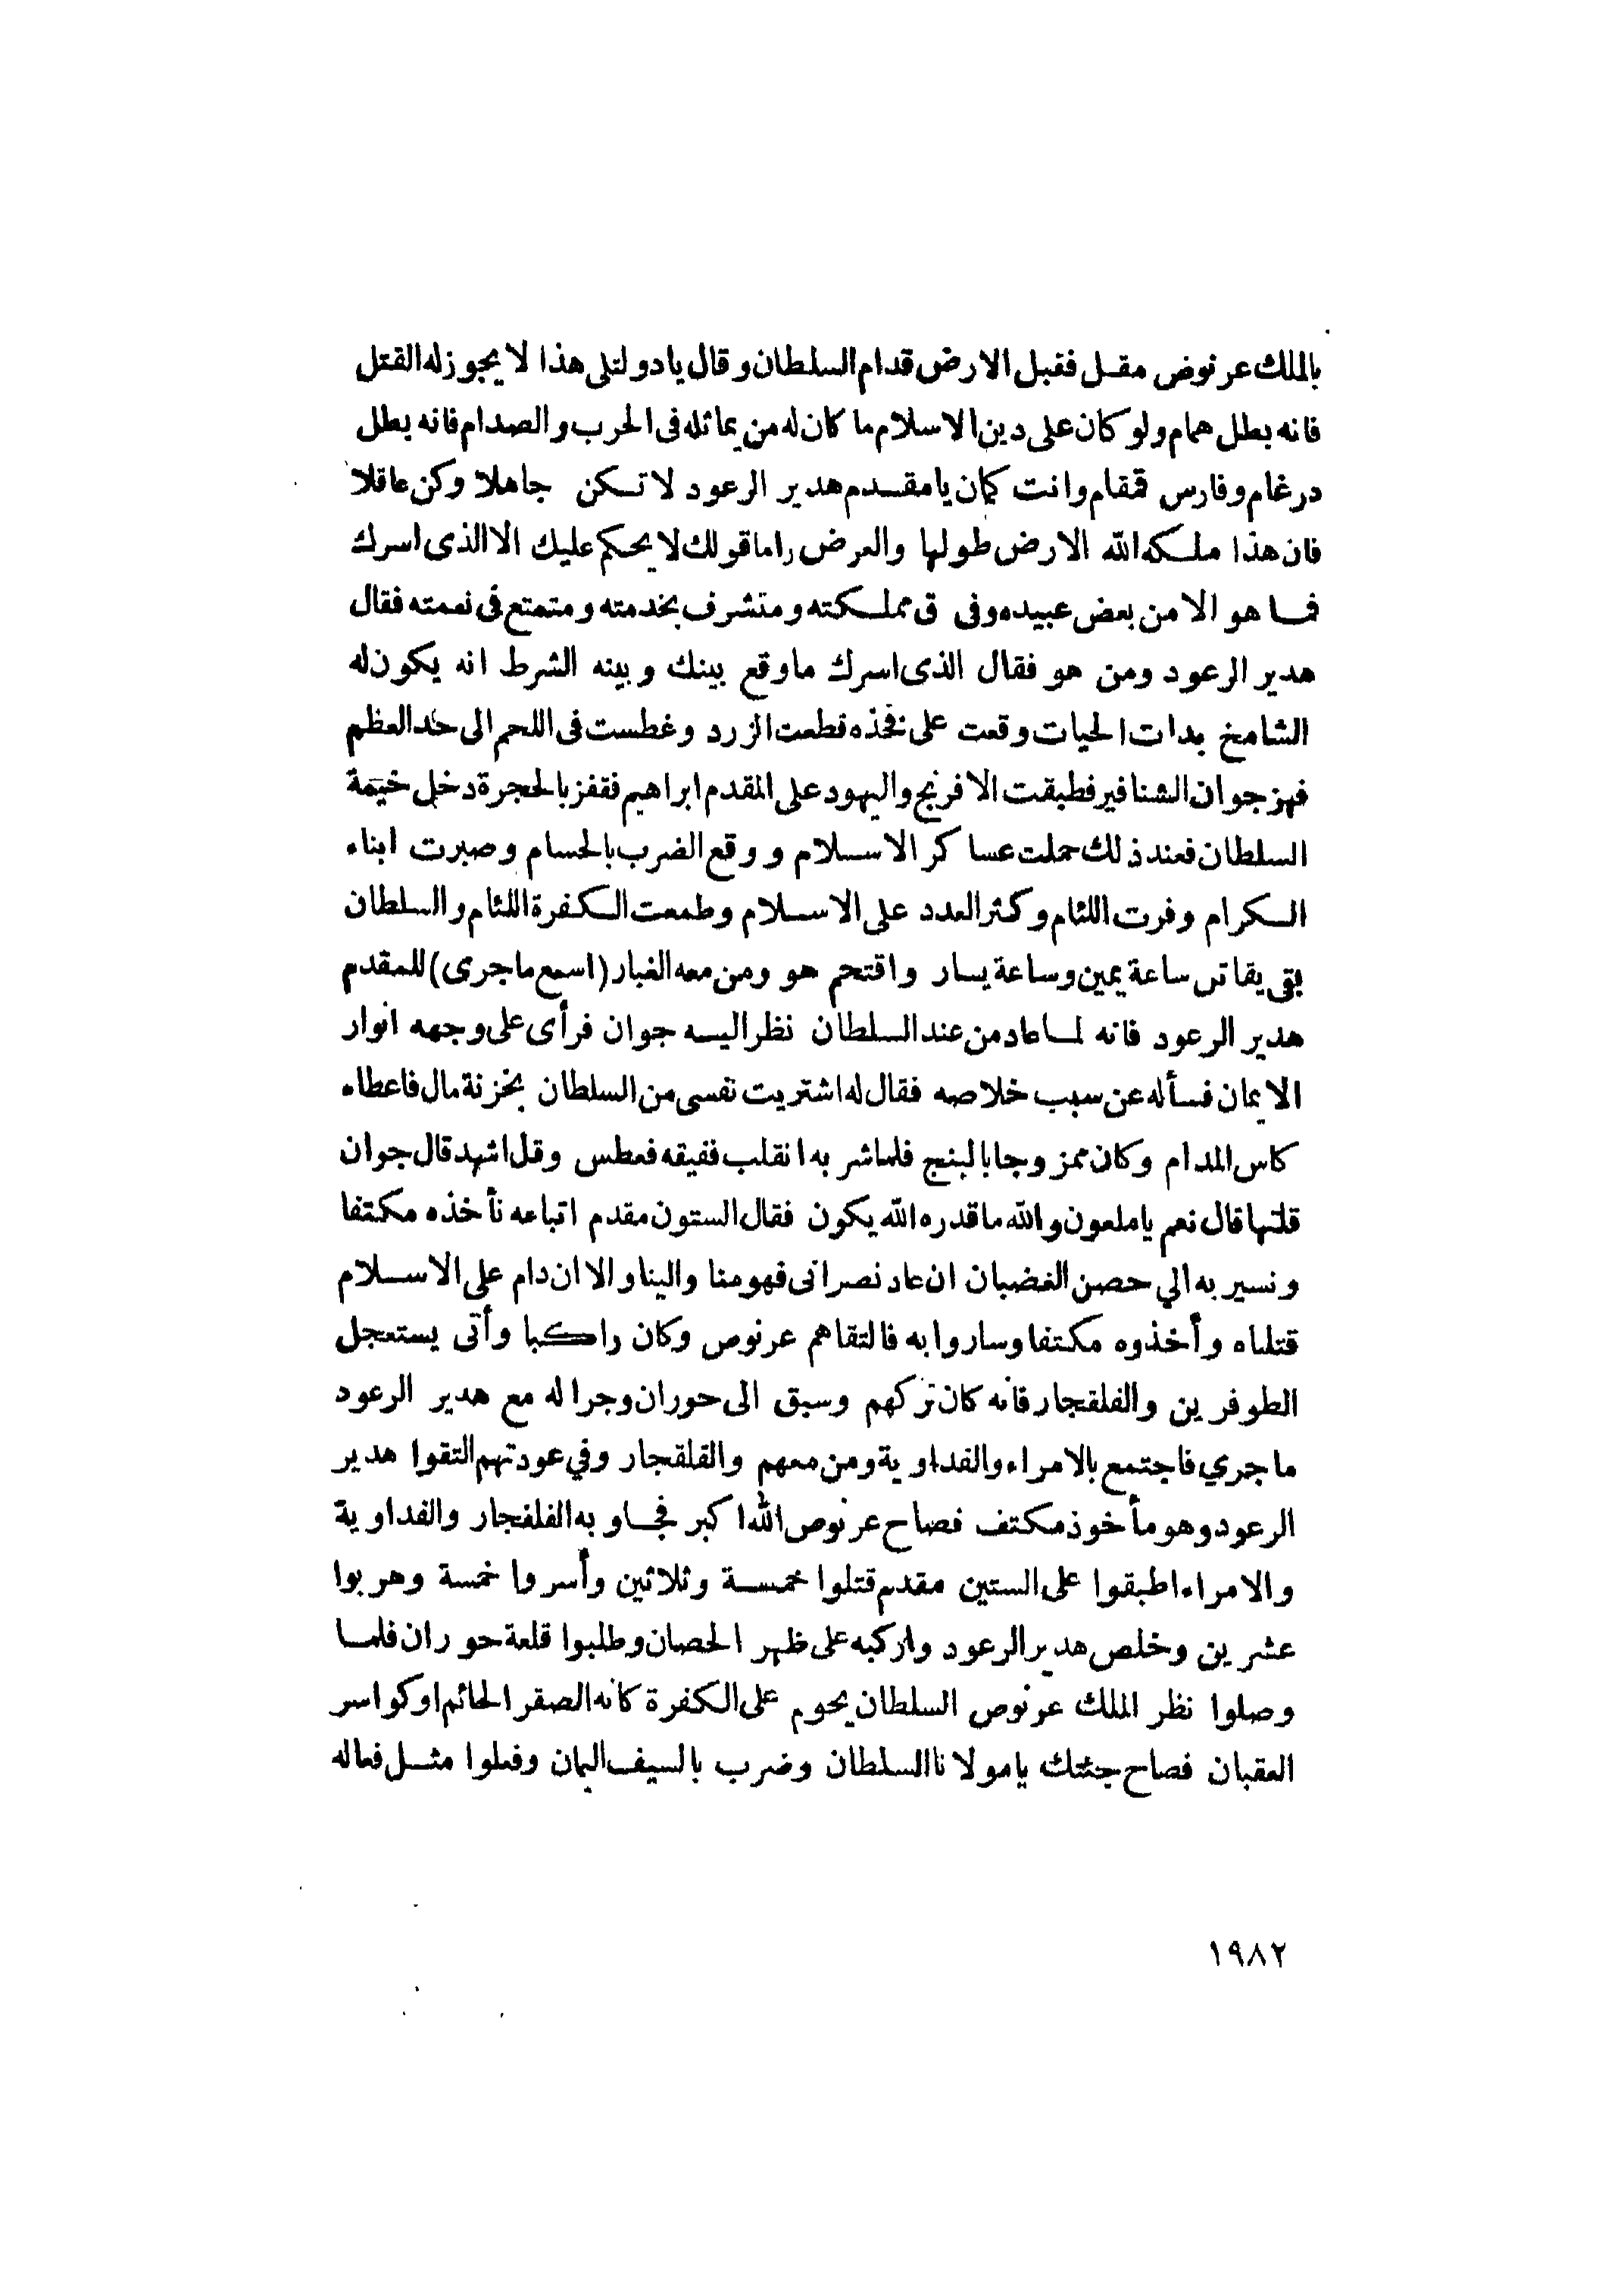 بالملك عرنوض مقـل فقبل الارض قدام السلطان وقال يادولتلى هذا لا يجوز له القتل
فانه بطل همام ولو كان على دين الاسلام ما كان له من يماثله فى الحرب والصدام فانه بطل
درغام وفارس قمقام وانت كمان يا مقـدم هدير الرعود لا تـكن جاهلا وكن عاقلا
فان هذا ملـكه الله الارض طولها والعرض راما قولك لا يحكم عليك الا الذى اسرك
فـا هو الا من بعض عبيده وفى ق مملـكته ومتشرف بخدمته ومتمتع فى نعمته فقال
هدير الرعود ومن هو فقال الذى اسرك ما وقع بينك وبينه الشرط انه يكون له
الشامخ بدات الحيات وقعت على نفخذه قطعت الزرد وغطست فى اللحم الى حد العظم
فهز جوان الشنافير فطبقت الافرنج واليهود على المقدم ابراهيم فقفز بالحجرة دخل خيمة
السلطان فعند ذلك حملت عساكر الاسـلام ووقع الضرب بالحسام وصبرت ابناء
الـكرام وفرت اللئام وكثر العدد على الاسـلام وطمعت الـكفرة اللئام والسلطان
بقى يقاتل ساعة يمين وساعة يسار واقتحم هو ومن معه الغبار (اسمع ماجرى) للمقدم
هدير الرعود فانه لـا عاد من عند السلطان نظر اليـه جوان فرأى على وجهه انوار
الايمان فسأله عن سبب خلاصه فقال له اشتريت نفسى من السلطان بخزنة مال فاعطاه
كاس المدام وكان ممزوجا بالبنج فلما شر به انقلب ففيقه فعطس وقل اشهد قال جوان
قلتها قال نعم يا ملعون والله ما قدره الله يكون فقال الستون مقدم اتباعه نأخذه مكتفا
ونسير به الي حصن الغضبان ان عاد نصرانى فهو منا والينا والا ان دام على الاسـلام
قتلناه وأخذوه مكتفا وساروا به فالتقاهم عرنوص وكان راكبا وأتى يستعجل
الطوفرين والفلقجار فانه كان تركهم وسبق الى حوران وجرا له مع هدير الرعود
ما جري فاجتمع بالامراء والفداوية ومن معهم والقلقجار وفي عودتهم التقوا هدير
الرعود وهو مأخوذ مكتف فصاح عرنوص الله اكبر فجـاوبه الفلفجار والفداوية
والامراء اطبقوا على الستين مقدم قتلوا خمسـة وثلاثين وأسروا خمسة وهربوا
عشرين وخلص هدير الرعود واركبه على ظهر الحصان وطلبوا قلعة حوران فلمـا
وصلوا نظر الملك عرنوص السلطان يحوم على الكفرة كانه الصقر الحائم او كواسر
العقبان فصاح جئتك يا مولانا السلطان وضرب بالسيف اليمان وفعلوا مثـل فعاله
١٩٨٢